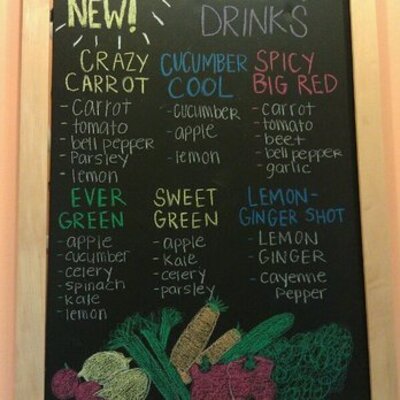 NEW!
DRINKS
CRAZY
CARROT
- carrot
- tomato
- bell pepper
- Parsley
- lemon
CUCUMBER
COOL
- cucumber
- apple
- lemon
SPICY
BIG RED
- carrot
- tomato
- beet
- bell pepper
- garlic
EVER
GREEN
- apple
- cucumber
- celery
- spinach
- kale
- lemon
SWEET
GREEN
- apple
- kale
- celery
- parsley
LEMON-
GINGER SHOT
- LEMON
- GINGER
- cayenne
pepper